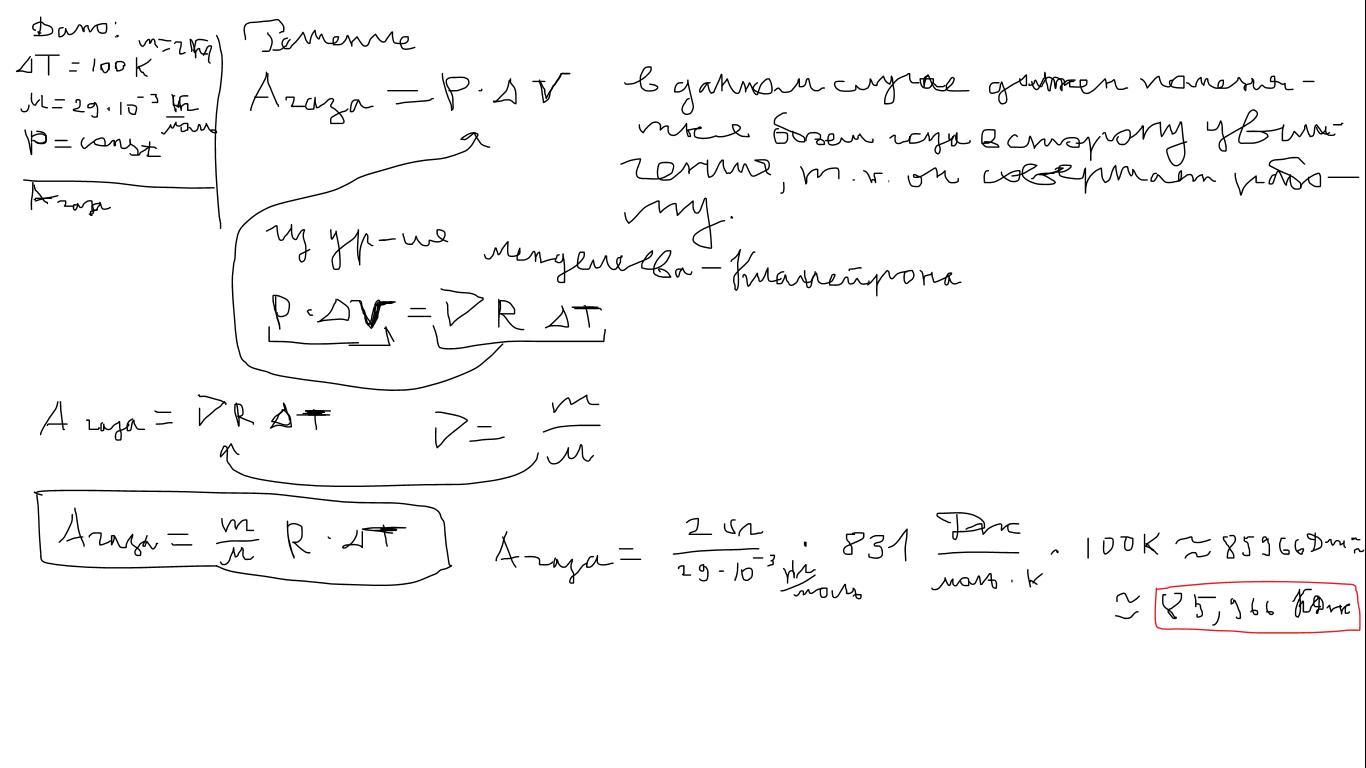 Дано:
m=2кг
ΔT = 100 К
μ = 29·10⁻³ кг/моль
P = const
Aгаза
Решение
Aгаза = P·ΔV
в данном случае должен поменя-
ться объем газа в сторону увели-
чения, т.к. он совершает рабо-
ту.
из ур-ия менделеева-Клапейрона
P·ΔV = ν R ΔT
Aгаза = ν R ΔT ν = m/μ
Aгаза = m/μ R·ΔT
Aгаза = 2 кг / 29·10⁻³ кг/моль · 831 Дж/моль·К · 100К ≈ 85966Дж ≈
≈ 85,966 КДж